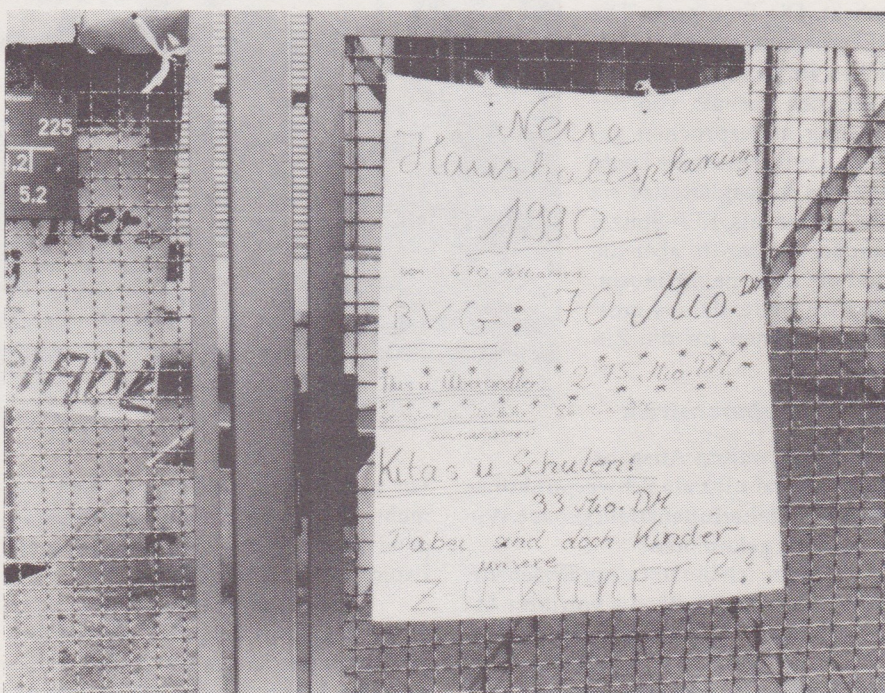 225
5.2
Neue
Haushaltsplanung
1990
von 670 Millionen
BVG: 70 Mio. DM
Aus u. Übersiedler 275 Mio. DM
Kitas u Schulen:
33 Mio. DM
Dabei sind doch Kinder
unsere
Z-U-K-U-N-F-T ??!